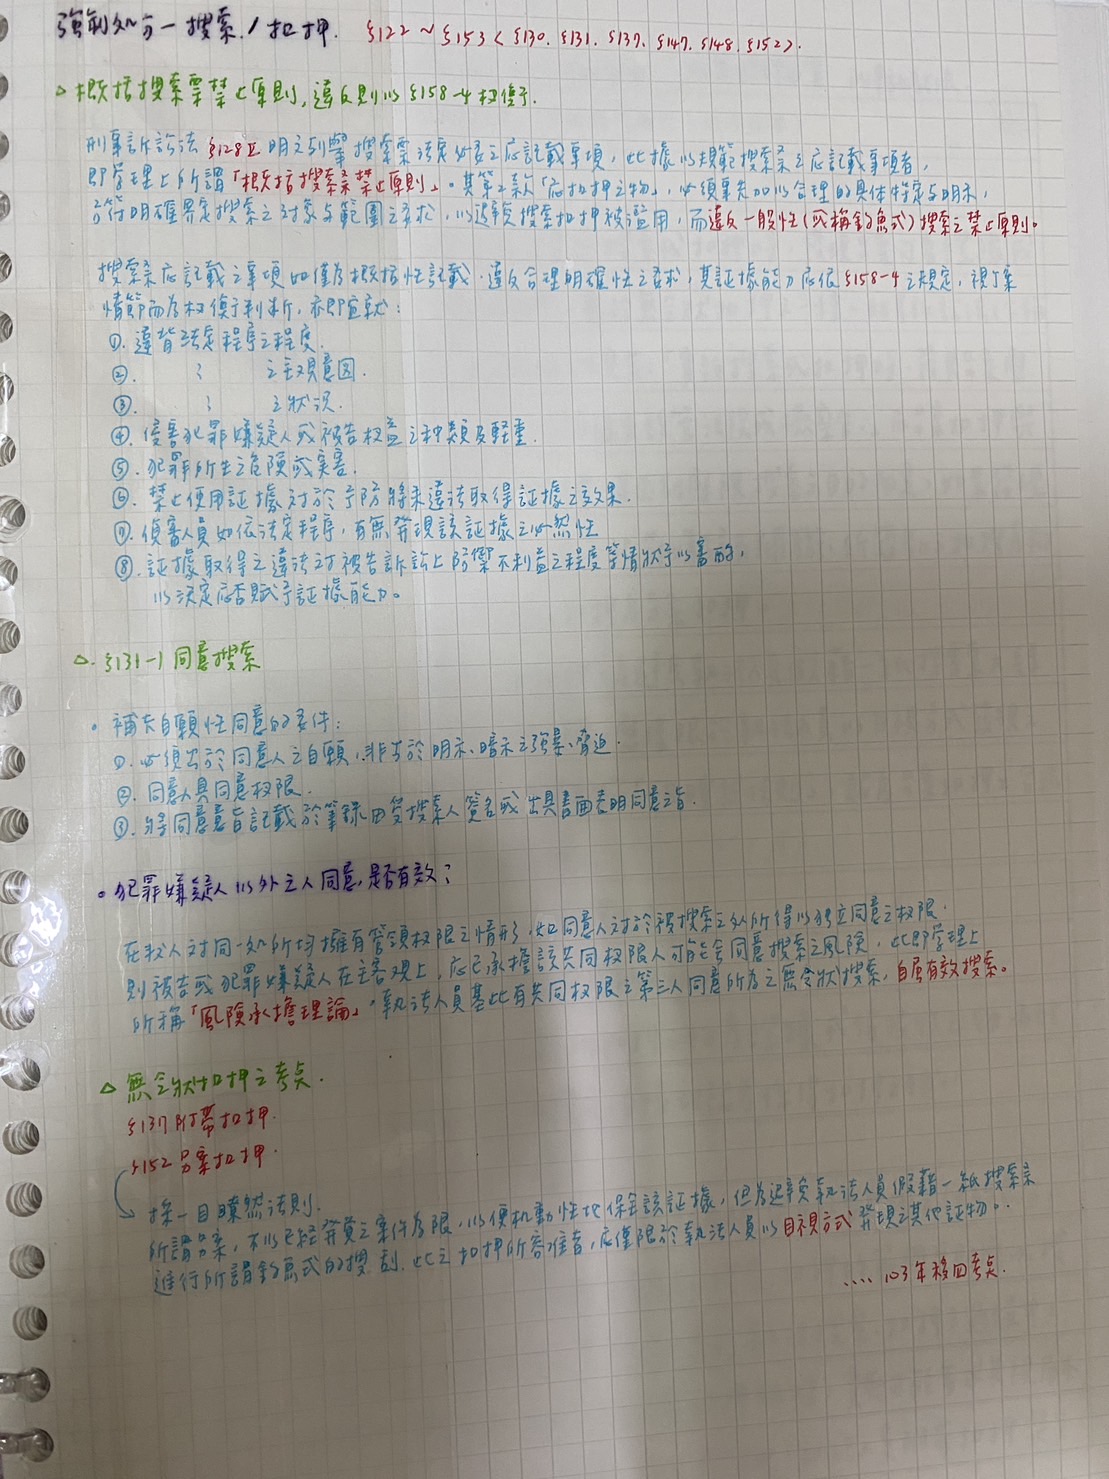 強制處分－搜索/扣押. §122～§153 < §130. §131. §137. §147. §148. §152>.
△ 概括搜索票禁止原則, 違反則以§158-4權衡.
刑事訴訟法 §128Ⅱ 明文列舉搜索票法定必要之應記載事項, 此據以規範搜索票之應記載事項者,
即學理上所謂「概括搜索票禁止原則」。其第2款「應扣押之物」, 必須事先加以合理的具體特定與明示,
方符明確界定搜索之對象與範圍之要求, 以避免搜索扣押被濫用, 而違反一般性(或稱釣魚式)搜索之禁止原則。
搜索票應記載之事項如僅為概括性記載, 違反合理明確性之要求, 其証據能力應依§158-4之規定, 視個案
情節而為權衡判斷, 亦即宜就:
①. 違背法定程序之程度.
②. 〃 之主觀意圖.
③. 〃 之狀況.
④. 侵害犯罪嫌疑人或被告權益之種類及輕重.
⑤. 犯罪所生之危險或實害.
⑥. 禁止使用証據對於予防將來違法取得証據之效果.
⑦. 偵審人員如依法定程序, 有無發現該証據之必然性
⑧. 証據取得之違法對被告訴訟上防禦不利益之程度等情狀予以審酌,
以決定應否賦予証據能力。
△. §131-1 同意搜索
• 補大自願性同意的要件:
①. 必須出於同意人之自願, 非出於明示、暗示之強暴、脅迫.
②. 同意人具同意權限.
③. 將同意意旨記載於筆錄由受搜索人簽名或出具書面表明同意之旨.
• 犯罪嫌疑人以外之人同意, 是否有效?
在數人對同一處所均擁有管領權限之情形, 如同意人對於被搜索之處所得以獨立同意之權限.
則被告或犯罪嫌疑人在主客觀上, 應已承擔該共同權限人可能會同意搜索之風險, 此即學理上
所稱「風險承擔理論」。執法人員基此有共同權限之第三人同意所為之無令狀搜索, 自屬有效搜索。
△ 無令狀扣押之考点.
§137 附帶扣押.
§152 另案扣押.
採一目瞭然法則.
所謂另案, 不以已經發覺之案件為限, 以便機動性地保全該証據, 但為避免執法人員假藉一紙搜索票
進行所謂釣魚式的搜刮, 此之扣押所容准者, 應僅限於執法人員以目視方式發現之其他証物。
.... 103年移四考点.